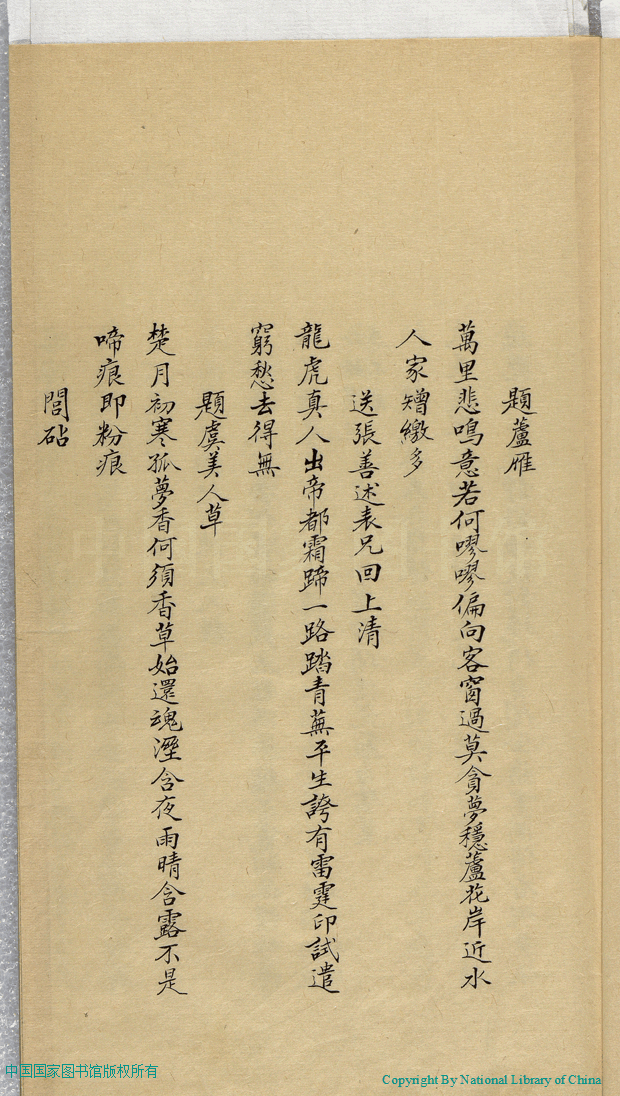 題蘆雁
萬里悲鳴意若何嘐嘐偏向客窗過莫貪夢穩蘆花岸近水
人家矰繳多
送張善述表兄回上清
龍虎真人出帝都霜蹄一路踏青蕪平生誇有雷霆印試遣
窮愁去得無
題虞美人草
楚月初寒孤夢香何須香草始還魂溼含夜雨晴含露不是
啼痕即粉痕
閭砧
中国国家图书馆版权所有
Copyright By National Library of China